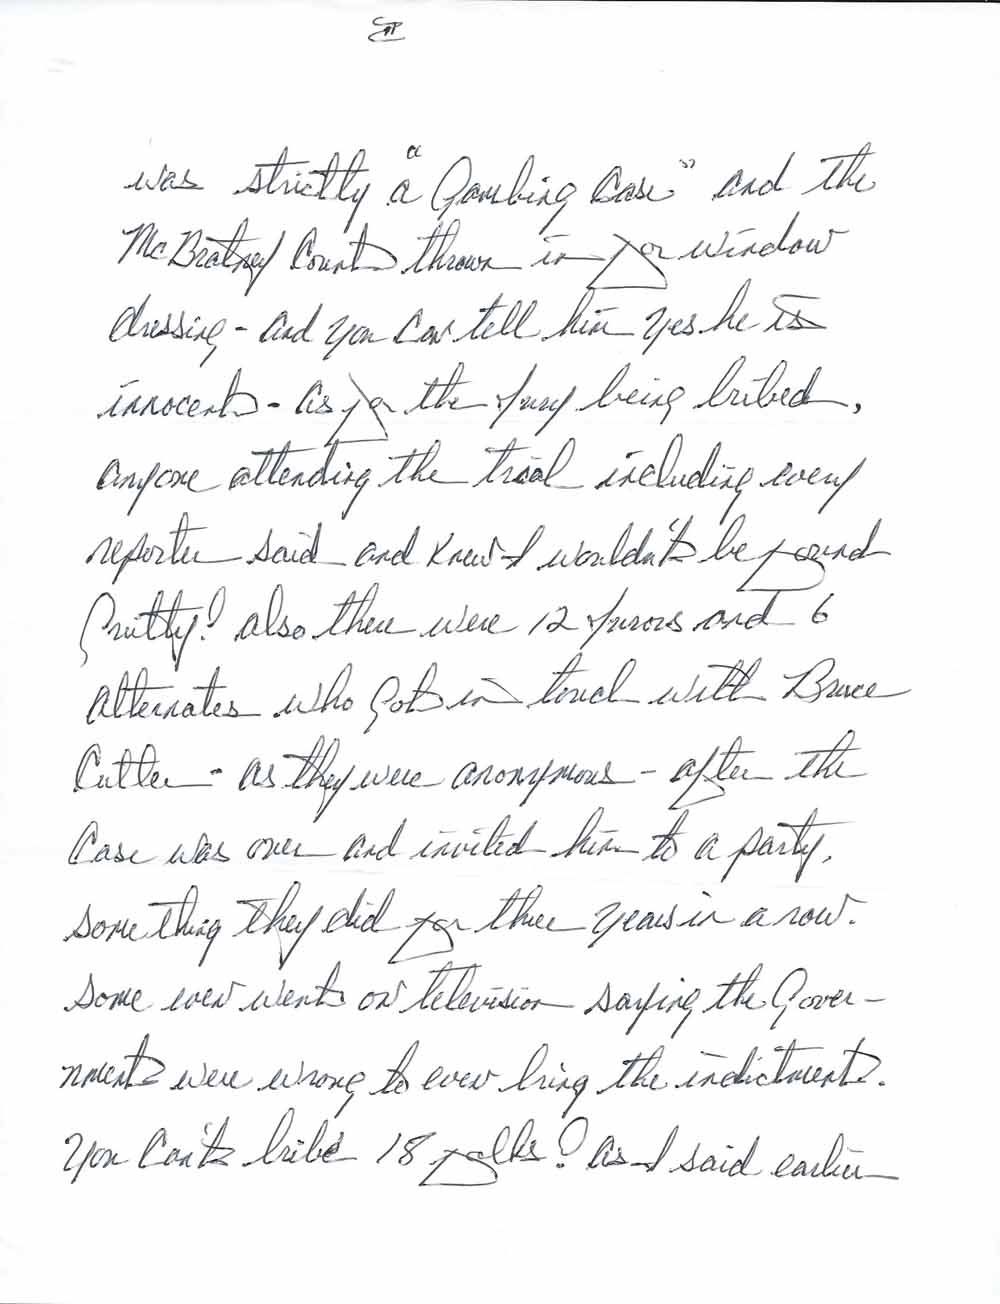 II
was strictly "a Gambing Case" and the
McBratney Count thrown in for window
dressing - and you can tell him yes he is
innocent - as for the jury being bribed,
anyone attending the trial including every
reporter said and knew I wouldn't be found
Guilty! also there were 12 jurors and 6
alternates who got in touch with Bruce
Cutler - as they were anonymous - after the
Case was over and invited him to a party,
something they did for three years in a row.
Some even went on television saying the Gover-
nment were wrong to even bring the indictment.
You Can't bribe 18 folks! as I said earlier